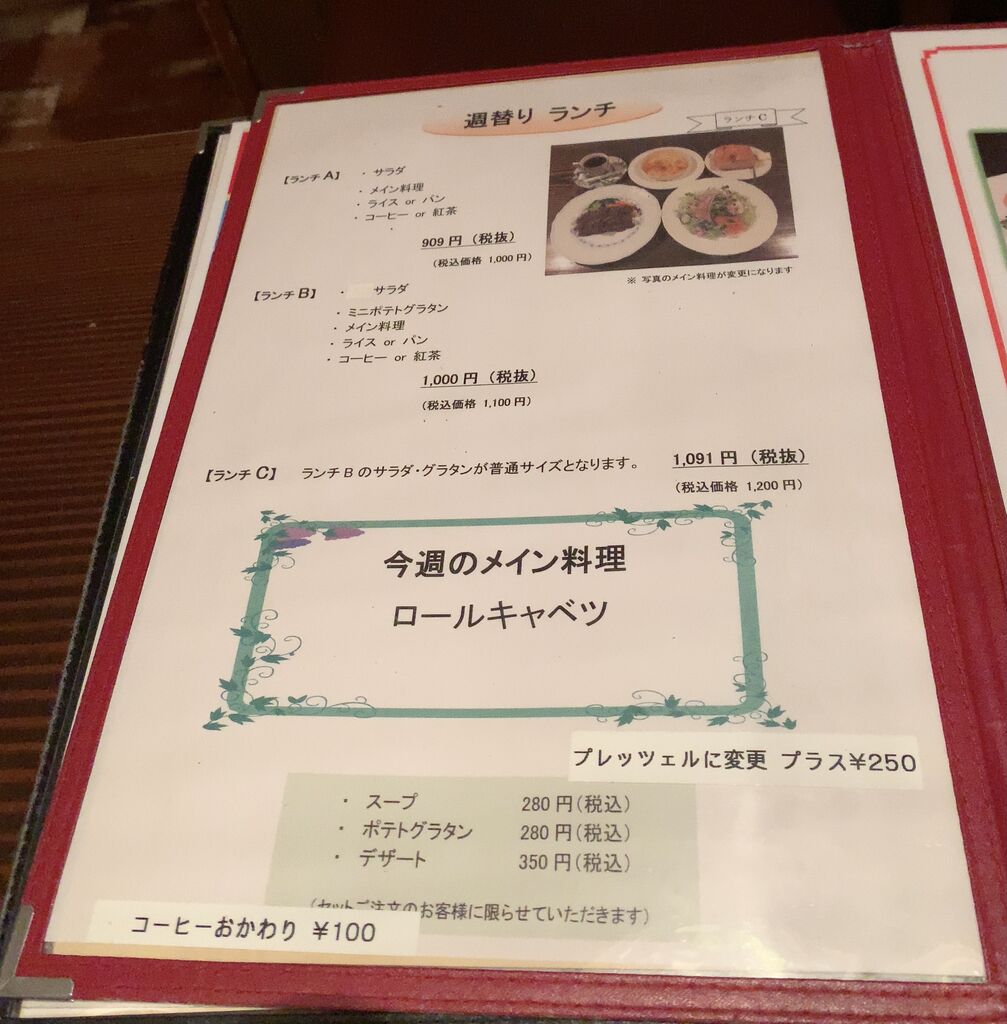 週替り ランチ
ランチ C
【ランチ A】 ・ サラダ
・ メイン料理
・ ライス or パン
・ コーヒー or 紅茶
909 円 (税抜)
(税込価格 1,000 円)
※ 写真のメイン料理が変更になります
【ランチ B】 ・ サラダ
・ ミニポテトグラタン
・ メイン料理
・ ライス or パン
・ コーヒー or 紅茶
1,000 円 (税抜)
(税込価格 1,100 円)
【ランチ C】 ランチ B のサラダ・グラタンが普通サイズとなります。 1,091 円 (税抜)
(税込価格 1,200 円)
今週のメイン料理
ロールキャベツ
プレッツェルに変更 プラス¥250
・ スープ 280 円(税込)
・ ポテトグラタン 280 円(税込)
・ デザート 350 円(税込)
(セットご注文のお客様に限らせていただきます)
コーヒーおかわり ¥100